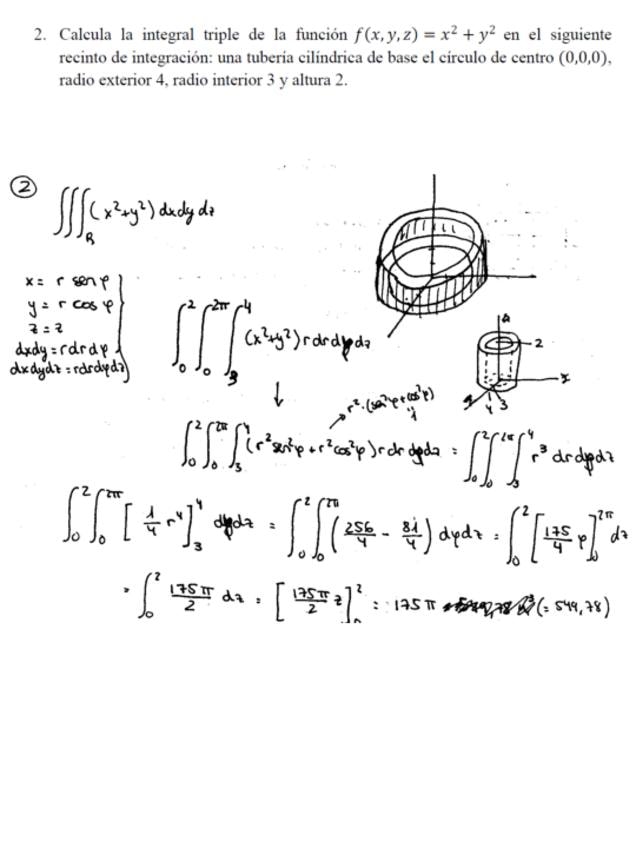 2. Calcula la integral triple de la función f(x, y, z) = x² + y² en el siguiente
recinto de integración: una tubería cilíndrica de base el círculo de centro (0,0,0),
radio exterior 4, radio interior 3 y altura 2.
②
∭_R (x²+y²) dxdydz
x = r sen φ
y = r cos φ
z = z
dxdy = rdrdφ
dxdydz = rdrdφdz
∫₀² ∫₀^2π ∫₃⁴ (x²+y²) r dr dφ dz
2
x
4 3
↓
r²·(sen²φ+cos²φ)
1
∫₀² ∫₀^2π ∫₃⁴ (r²sen²φ + r²cos²φ) r dr dφdz = ∫₀² ∫₀^2π ∫₃⁴ r³ drdφdz
∫₀² ∫₀^2π [1/4 r⁴]₃⁴ dφdz = ∫₀² ∫₀^2π (256/4 - 81/4) dφdz = ∫₀² [175/4 φ]₀^2π dz
= ∫₀² 175π/2 dz = [175π/2 z]₀² = 175π (= 549,78)